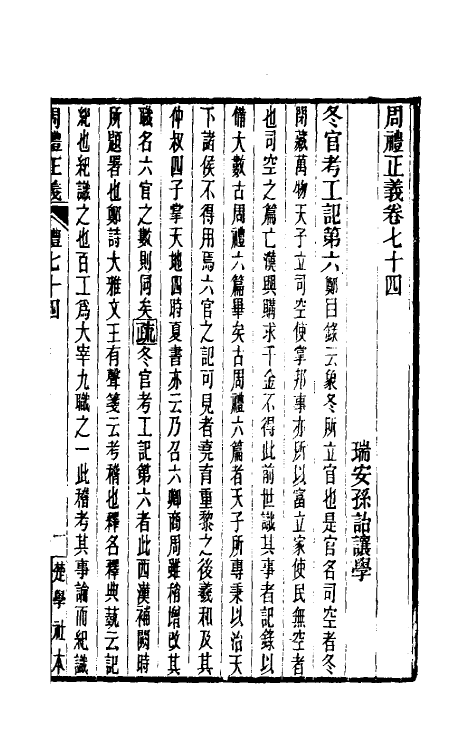 周禮正義卷七十四
瑞安孫詒讓學
冬官考工記第六鄭目錄云象冬所立官也是官名司空者冬
閉藏萬物天子立司空使掌邦事亦所以富立家使民無空者
也司空之篇亡漢興購求千金不得此前世識其事者記錄以
備大數古周禮六篇畢矣古周禮六篇者天子所專秉以治天
下諸侯不得用焉六官之記可見者堯育重黎之後羲和及其
仲叔四子掌天地四時夏書亦云乃召六卿商周雖稍增改其
職名六官之數則同矣疏冬官考工記第六者此西漢補闕時
所題署也鄭詩大雅文王有聲箋云考稽也釋名釋典蓺云記
紀也紀識之也百工爲大宰九職之一此稽考其事論而紀識
周禮正義 禮七十四 一 楚學社本